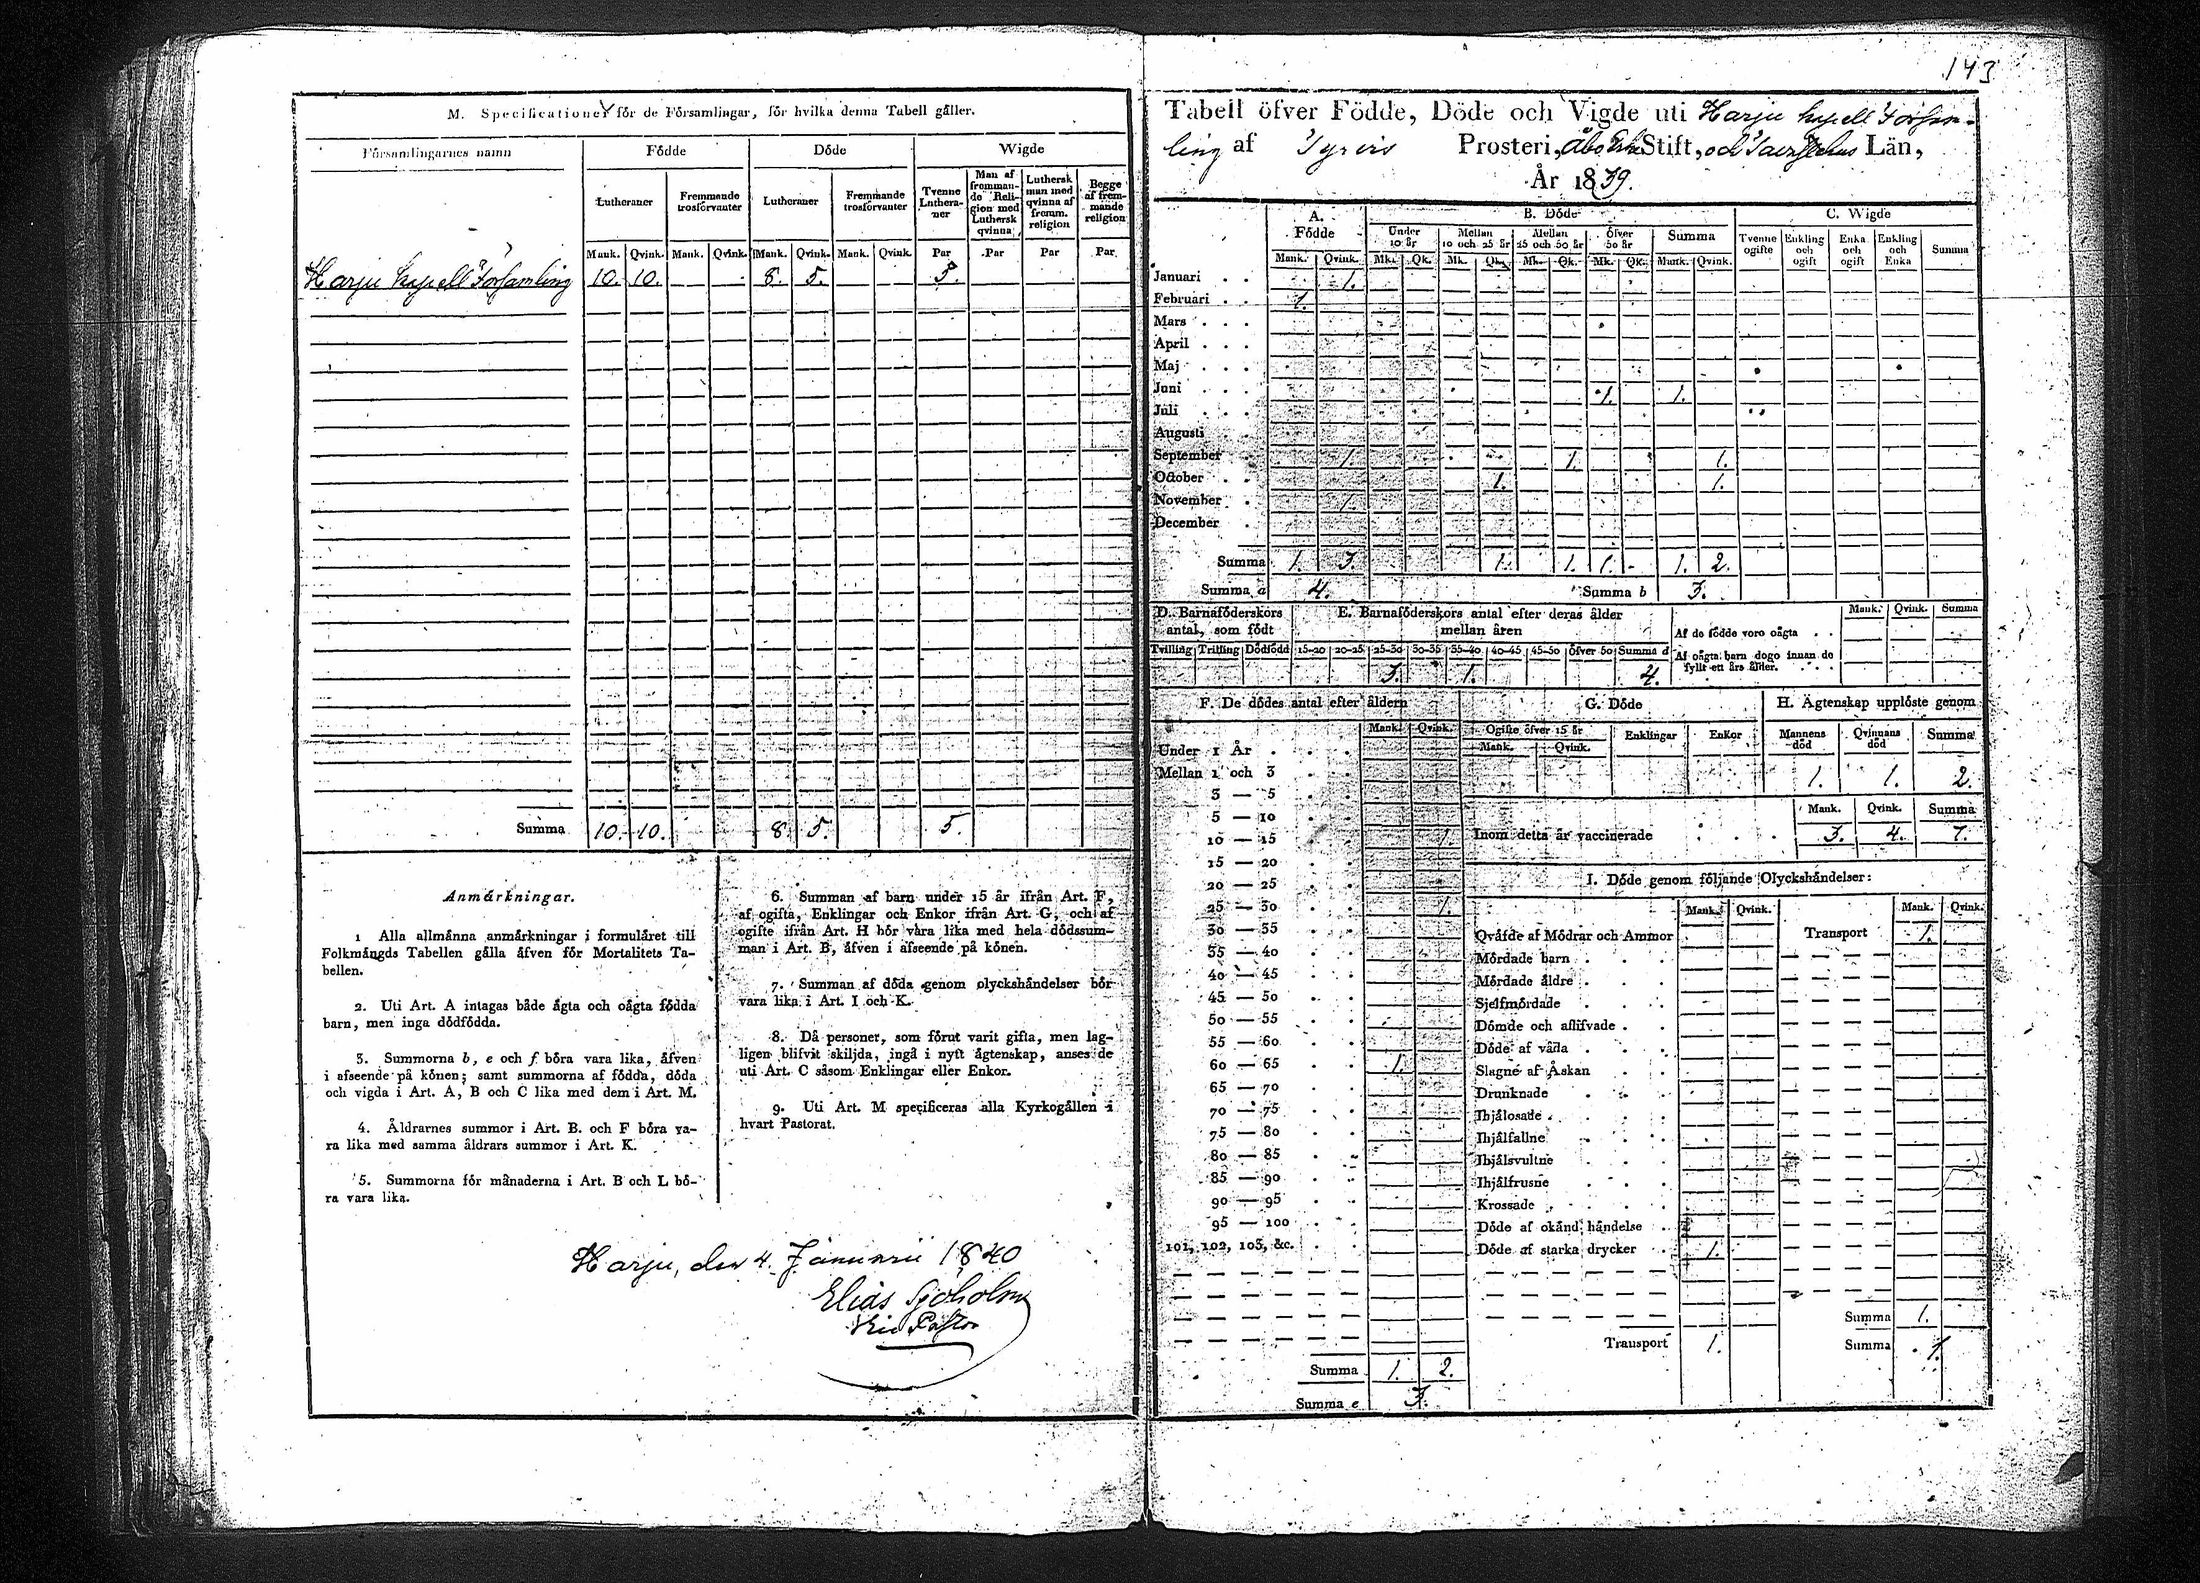 M. Specificationer för de Församlingar, för hvilka denna Tabell gäller.
Församlingarnes namn Födde Döde Wigde
Lutheraner Fremmande trosförvanter Lutheraner Fremmande trosförvanter Tvenne Lutheraner Man af fremmande Religion med Luthersk qvinna Luthersk man med qvinna af fremm. religion Begge af fremmande religion
Mank. Qvink. Mank. Qvink. Mank. Qvink. Mank. Qvink. Par Par Par Par
Harju kapell Församling 10. 10. 8. 5. 5.
Summa 10. 10. 8. 5. 5.
Anmärkningar.
1 Alla allmänna anmärkningar i formuläret till
Folkmängds Tabellen gälla äfven för Mortalitets Ta-
bellen.
2. Uti Art. A intagas både ägta och oägta födda
barn, men inga dödfödda.
3. Summorna b, e och f böra vara lika, äfven
i afseende på könen; samt summorna af födda, döda
och vigda i Art. A, B och C lika med dem i Art. M.
4. Åldrarnes summor i Art. B. och F böra va-
ra lika med samma åldrars summor i Art. K.
5. Summorna för månaderna i Art. B och L bö-
ra vara lika.
6. Summan af barn under 15 år ifrån Art. F,
af ogifta, Enklingar och Enkor ifrån Art. G, och af
ogifte ifrån Art. H bör vara lika med hela dödssum-
man i Art. B, äfven i afseende på könen.
7. Summan af döda genom olyckshändelser bör
vara lika i Art. I och K.
8. Då personer, som förut varit gifta, men lag-
ligen blifvit skiljda, ingå i nytt ägtenskap, anses de
uti Art. C såsom Enklingar eller Enkor.
9. Uti Art. M specificeras alla Kyrkogällen i
hvart Pastorat.
Harju, den 4. Januarii 1840
Elias Sjöholm
Vice Pastor
143
Tabell öfver Födde, Döde och Vigde uti Harju kapell Försam-
ling af Tyrvis Prosteri, Åbo Erke Stift, och Tavastehus Län,
År 1839.
A. Födde B. Döde C. Wigde
Under 10 år Mellan 10 och 25 år Mellan 25 och 50 år öfver 50 år Summa Tvenne ogifte Enkling och ogift Enka och ogift Enkling och Enka Summa
Mank. Qvink. Mk. Qk. Mk. Qk. Mk. Qk. Mk. Qk. Mank. Qvink.
Januari 1.
Februari 1.
Mars
April
Maj
Juni 1. 1.
Juli
Augusti
September 1. 1. 1.
October 1. 1.
November 1.
December
Summa 1. 3. 1. 1. 1. 1. 2.
Summa a 4. Summa b 3.
D. Barnaföderskors antal, som födt E. Barnaföderskors antal efter deras ålder mellan åren Mank. Qvink. Summa
Tvilling Trilling Dödfödd 15-20 20-25 25-30 30-35 35-40 40-45 45-50 öfver 50 Summa d
Af de födde voro oägta
Af oägta barn dogo innan de fyllt ett års ålder.
3. 1. 4.
F. De dödes antal efter åldern G. Döde H. Ägtenskap upplöste genom
Mank. Qvink. Ogifte öfver 15 år Mank. Qvink. Enklingar Enkor Mannens död Qvinnans död Summa
1. 1. 2.
Mank. Qvink. Summa
Inom detta år vaccinerade 3. 4. 7.
Under 1 År
Mellan 1 och 3
3 — 5
5 — 10
10 — 15 1.
15 — 20
20 — 25
25 — 30 1.
30 — 35
35 — 40
40 — 45
45 — 50
50 — 55
55 — 60
60 — 65 1.
65 — 70
70 — 75
75 — 80
80 — 85
85 — 90
90 — 95
95 — 100
101, 102, 103, &c.
Summa 1. 2.
Summa e 3.
I. Döde genom följande Olyckshändelser:
Mank. Qvink. Mank. Qvink.
Qväfde af Mödrar och Ammor Transport 1.
Mördade barn
Mördade äldre
Sjelfmördade
Dömde och aflifvade
Döde af våda
Slagne af Åskan
Drunknade
Ihjälosade
Ihjälfallne
Ihjälsvultne
Ihjälfrusne
Krossade
Döde af okänd händelse
Döde af starka drycker 1.
Summa 1.
Transport 1. Summa 1.